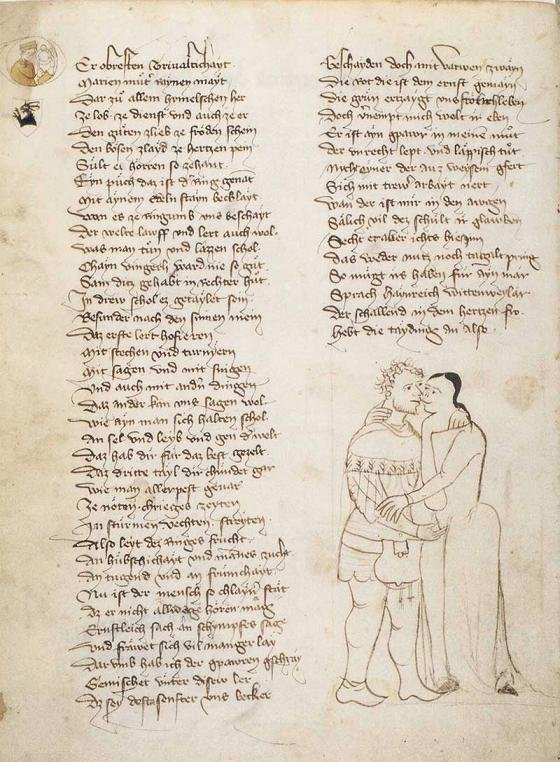 Er obresten Trivaltichayt
Marien můt' raynen mayt
Dar zů allem hymelschen her
Ze lob ze dienst und auch ze er
Den gůten zlieb ze fröden schein
Den bösen zlayd ze hertzen pein
Sült es horren so zehant
Eyn půch daz ist d' Ring genāt
Mit aynem edeln stayn becklayt
Wan es ze ringumb uns beschayt
Der welte lawff und lert auch wol
was man tůn und lazzen schol
Chayn vingerli ward nie so gůt
Sam ditz gehabt in rechter hůt
In drew schol ez getaylet sein
Besunder nach den sinnen mein
Daz erste lert hofierren
Mit stechen und turnyern
Mit sagen und mit singen
Und auch mit and'n dingen
Daz ander kan uns sagen wol
wie ayn man sich halten schol
An sel und leyb und gen d' welt
Daz hab dir für daz best gezelt
Daz dritte tayl dir chündet gar
wie man allerpest gevar
Ze nöten chrieges zeyten
In stürmen vechten streyten
Also leyt dez ringes frücht
An hübschichayt und mānes zucht
An tugend und an frümchayt
Nu ist der mensch so chlayn' stät
Dz er nicht allwege hören mag
Ernstleich sach an schympfes sag
und fräwet sich vil manger lay
Dar umb hab ich der gpawren gschray
Gemischet unter disew ler
Dz sey dest senfter uns becher
Geschayden doch mit varwen zwayn
Die rot die ist dem ernst gemayn
Die grün ertzaygt uns törpelleben
Doch vernempt mich welt ir eben
Er ist ayn gpawr in meinem můt
Der unrecht lept und läppisch tůt
Nicht eyner der auz weysem gfert
Sich mit trew' arbayt nert
Wan der ist mir in den awgen
Sälich vil dez schült ir glawben
Secht er aber ichts hiezinn
Das weder nutz noch tagalt pring
So mügt irs haben für ayn mär
Sprach Haynreich Wittenweylär
Der schallend in dem hertzen fro
hebt die tayding an also